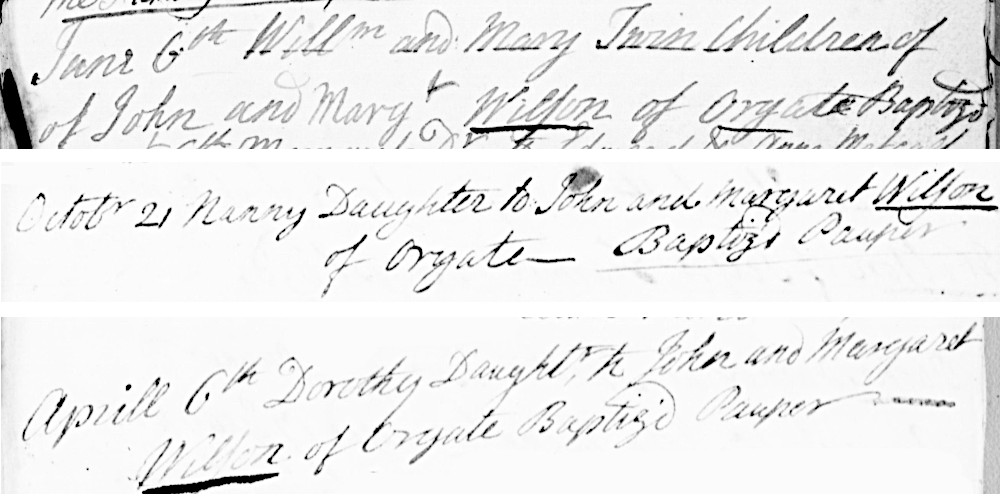 June 6th Willm and Mary Twin Children of
of John and Margt Wilson of Orgate Baptizd
Octobr 21 Nanny Daughter to John and Margaret Wilson
of Orgate Baptiz'd Pauper
Aprill 6th Dorothy Daughtr to John and Margaret
Wilson of Orgate Baptiz'd Pauper